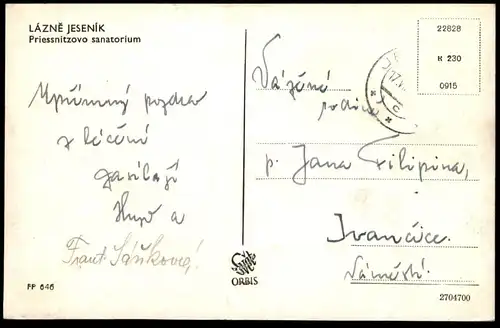 LÁZNĚ JESENÍK
Priessnitzovo sanatorium
22828
K 230
0915
Upřímný pozdrav
z léčení
zasílají
a
Frant. Sáňkovi!
Vážená
rodina
p. Jana Filipina,
Ivančice.
Náměstí.
ORBIS
FP 646
2704700